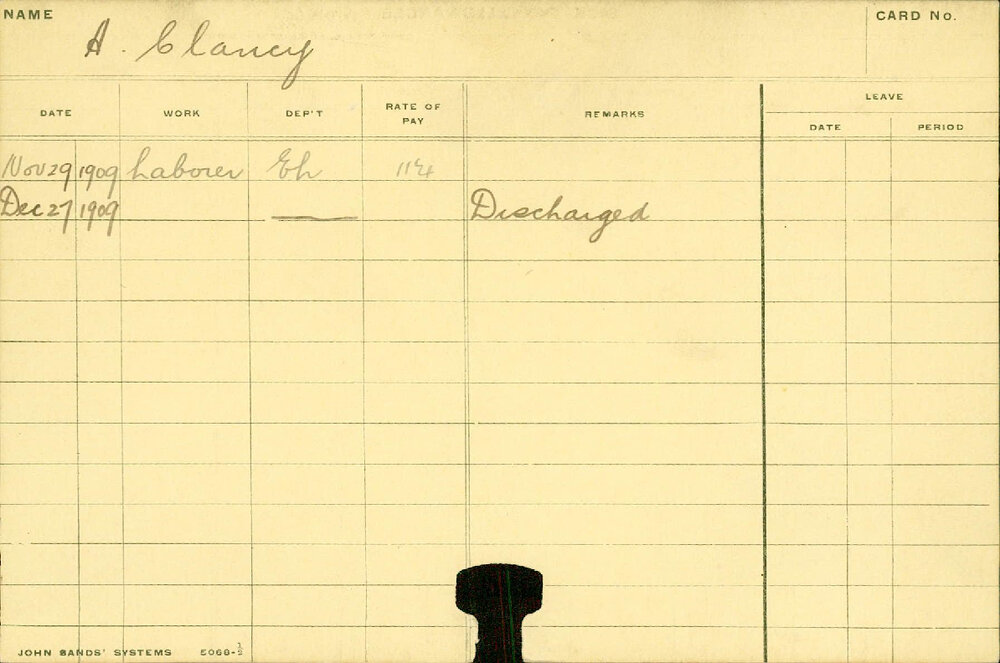 NAME A. Clancy CARD No.
DATE WORK DEP'T RATE OF PAY REMARKS LEAVE
DATE PERIOD
Nov 29 1909 Laborer Eh
Dec 27 1909 — Discharged
JOHN SANDS' SYSTEMS 5068-½